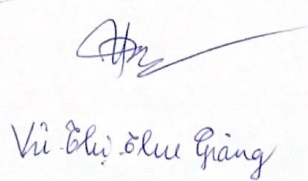 Vũ Thị Thu Giang